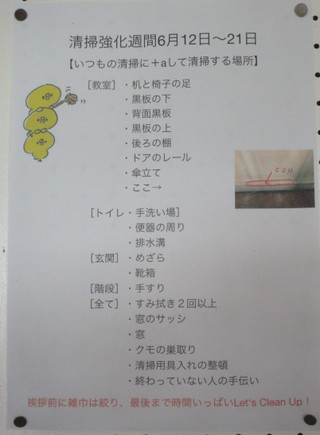 清掃強化週間6月12日〜21日
【いつもの清掃に＋aして清掃する場所】
[教室]・机と椅子の足
・黒板の下
・背面黒板
・黒板の上
・後ろの棚
・ドアのレール
・傘立て
・ここ→
ココ!!
[トイレ・手洗い場]
・便器の周り
・排水溝
[玄関]・めざら
・靴箱
[階段]・手すり
[全て]・すみ拭き２回以上
・窓のサッシ
・窓
・クモの巣取り
・清掃用具入れの整頓
・終わっていない人の手伝い
挨拶前に雑巾は絞り、最後まで時間いっぱいLet's Clean Up！